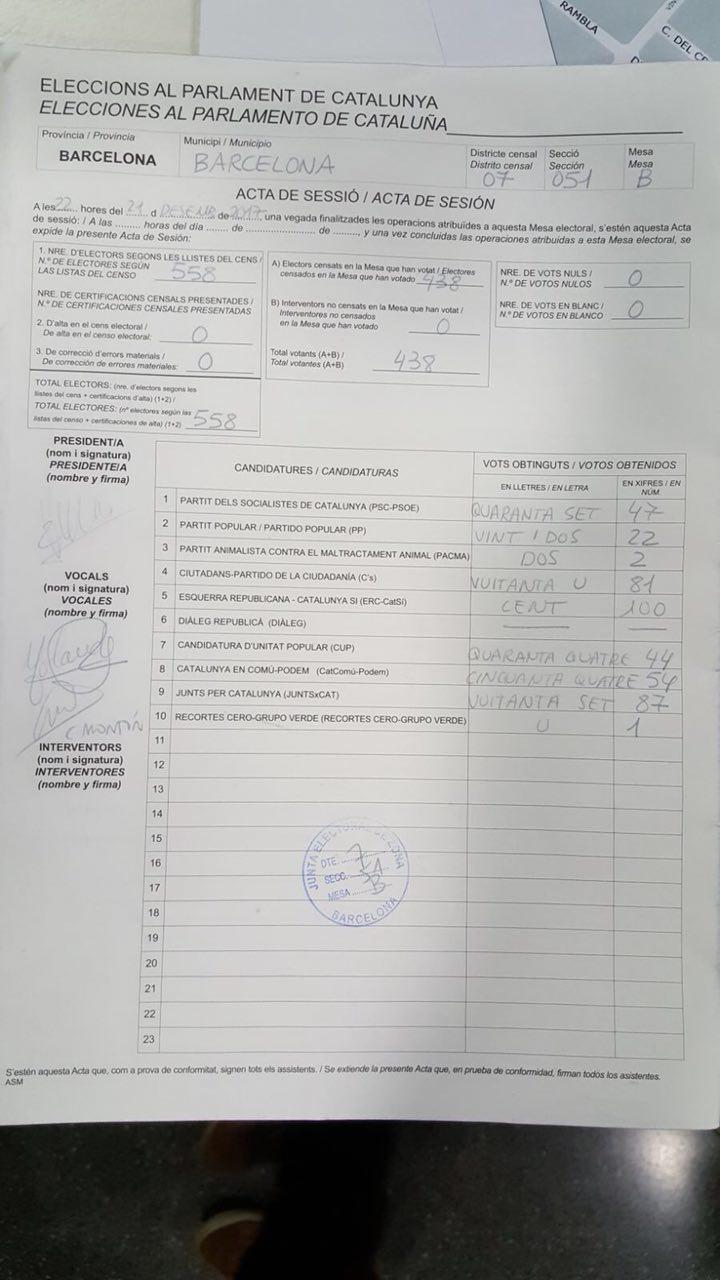 RAMBLA
C. DEL
ELECCIONS AL PARLAMENT DE CATALUNYA
ELECCIONES AL PARLAMENTO DE CATALUÑA
Província / Provincia
BARCELONA
Municipi / Municipio
BARCELONA
Districte censal
Distrito censal
07
Secció
Sección
051
Mesa
Mesa
B
ACTA DE SESSIÓ / ACTA DE SESIÓN
A les 22 hores del 21 d DESEMB. de 2017, una vegada finalitzades les operacions atribuïdes a aquesta Mesa electoral, s'estén aquesta Acta
de sessió: / A las ......... horas del día ....... de ........................ de ........, y una vez concluidas las operaciones atribuidas a esta Mesa electoral, se
expide la presente Acta de Sesión:
1. NRE. D'ELECTORS SEGONS LES LLISTES DEL CENS /
N.º DE ELECTORES SEGÚN
LAS LISTAS DEL CENSO 558
NRE. DE CERTIFICACIONS CENSALS PRESENTADES /
N.º DE CERTIFICACIONES CENSALES PRESENTADAS
2. D'alta en el cens electoral /
De alta en el censo electoral: 0
3. De correcció d'errors materials /
De corrección de errores materiales: 0
TOTAL ELECTORS: (nre. d'electors segons les
llistes del cens + certificacions d'alta) (1+2) /
TOTAL ELECTORES: (nº electores según las
listas del censo + certificaciones de alta) (1+2) 558
A) Electors censats en la Mesa que han votat / Electores
censados en la Mesa que han votado 438
B) Interventors no censats en la Mesa que han votat /
Interventores no censados
en la Mesa que han votado 0
Total votants (A+B) /
Total votantes (A+B) 438
NRE. DE VOTS NULS /
N.º DE VOTOS NULOS 0
NRE. DE VOTS EN BLANC /
N.º DE VOTOS EN BLANCO 0
PRESIDENT/A
(nom i signatura)
PRESIDENTE/A
(nombre y firma)
VOCALS
(nom i signatura)
VOCALES
(nombre y firma)
C MONTÓN
INTERVENTORS
(nom i signatura)
INTERVENTORES
(nombre y firma)
CANDIDATURES / CANDIDATURAS
VOTS OBTINGUTS / VOTOS OBTENIDOS
EN LLETRES / EN LETRA
EN XIFRES / EN
NÚM.
1 PARTIT DELS SOCIALISTES DE CATALUNYA (PSC-PSOE) QUARANTA SET 47
2 PARTIT POPULAR / PARTIDO POPULAR (PP) VINT I DOS 22
3 PARTIT ANIMALISTA CONTRA EL MALTRACTAMENT ANIMAL (PACMA) DOS 2
4 CIUTADANS-PARTIDO DE LA CIUDADANÍA (C's) VUITANTA U 81
5 ESQUERRA REPUBLICANA - CATALUNYA SI (ERC-CatSí) CENT 100
6 DIÀLEG REPUBLICÀ (DIÀLEG)
7 CANDIDATURA D'UNITAT POPULAR (CUP) QUARANTA QUATRE 44
8 CATALUNYA EN COMÚ-PODEM (CatComú-Podem) CINQUANTA QUATRE 54
9 JUNTS PER CATALUNYA (JUNTSxCAT) VUITANTA SET 87
10 RECORTES CERO-GRUPO VERDE (RECORTES CERO-GRUPO VERDE) U 1
11
12
13
14
15
16
17
18
19
20
21
22
23
JUNTA ELECTORAL DE ZONA
DTE. 7
SECC. 51
MESA B
BARCELONA
S'estén aquesta Acta que, com a prova de conformitat, signen tots els assistents. / Se extiende la presente Acta que, en prueba de conformidad, firman todos los asistentes.
ASM